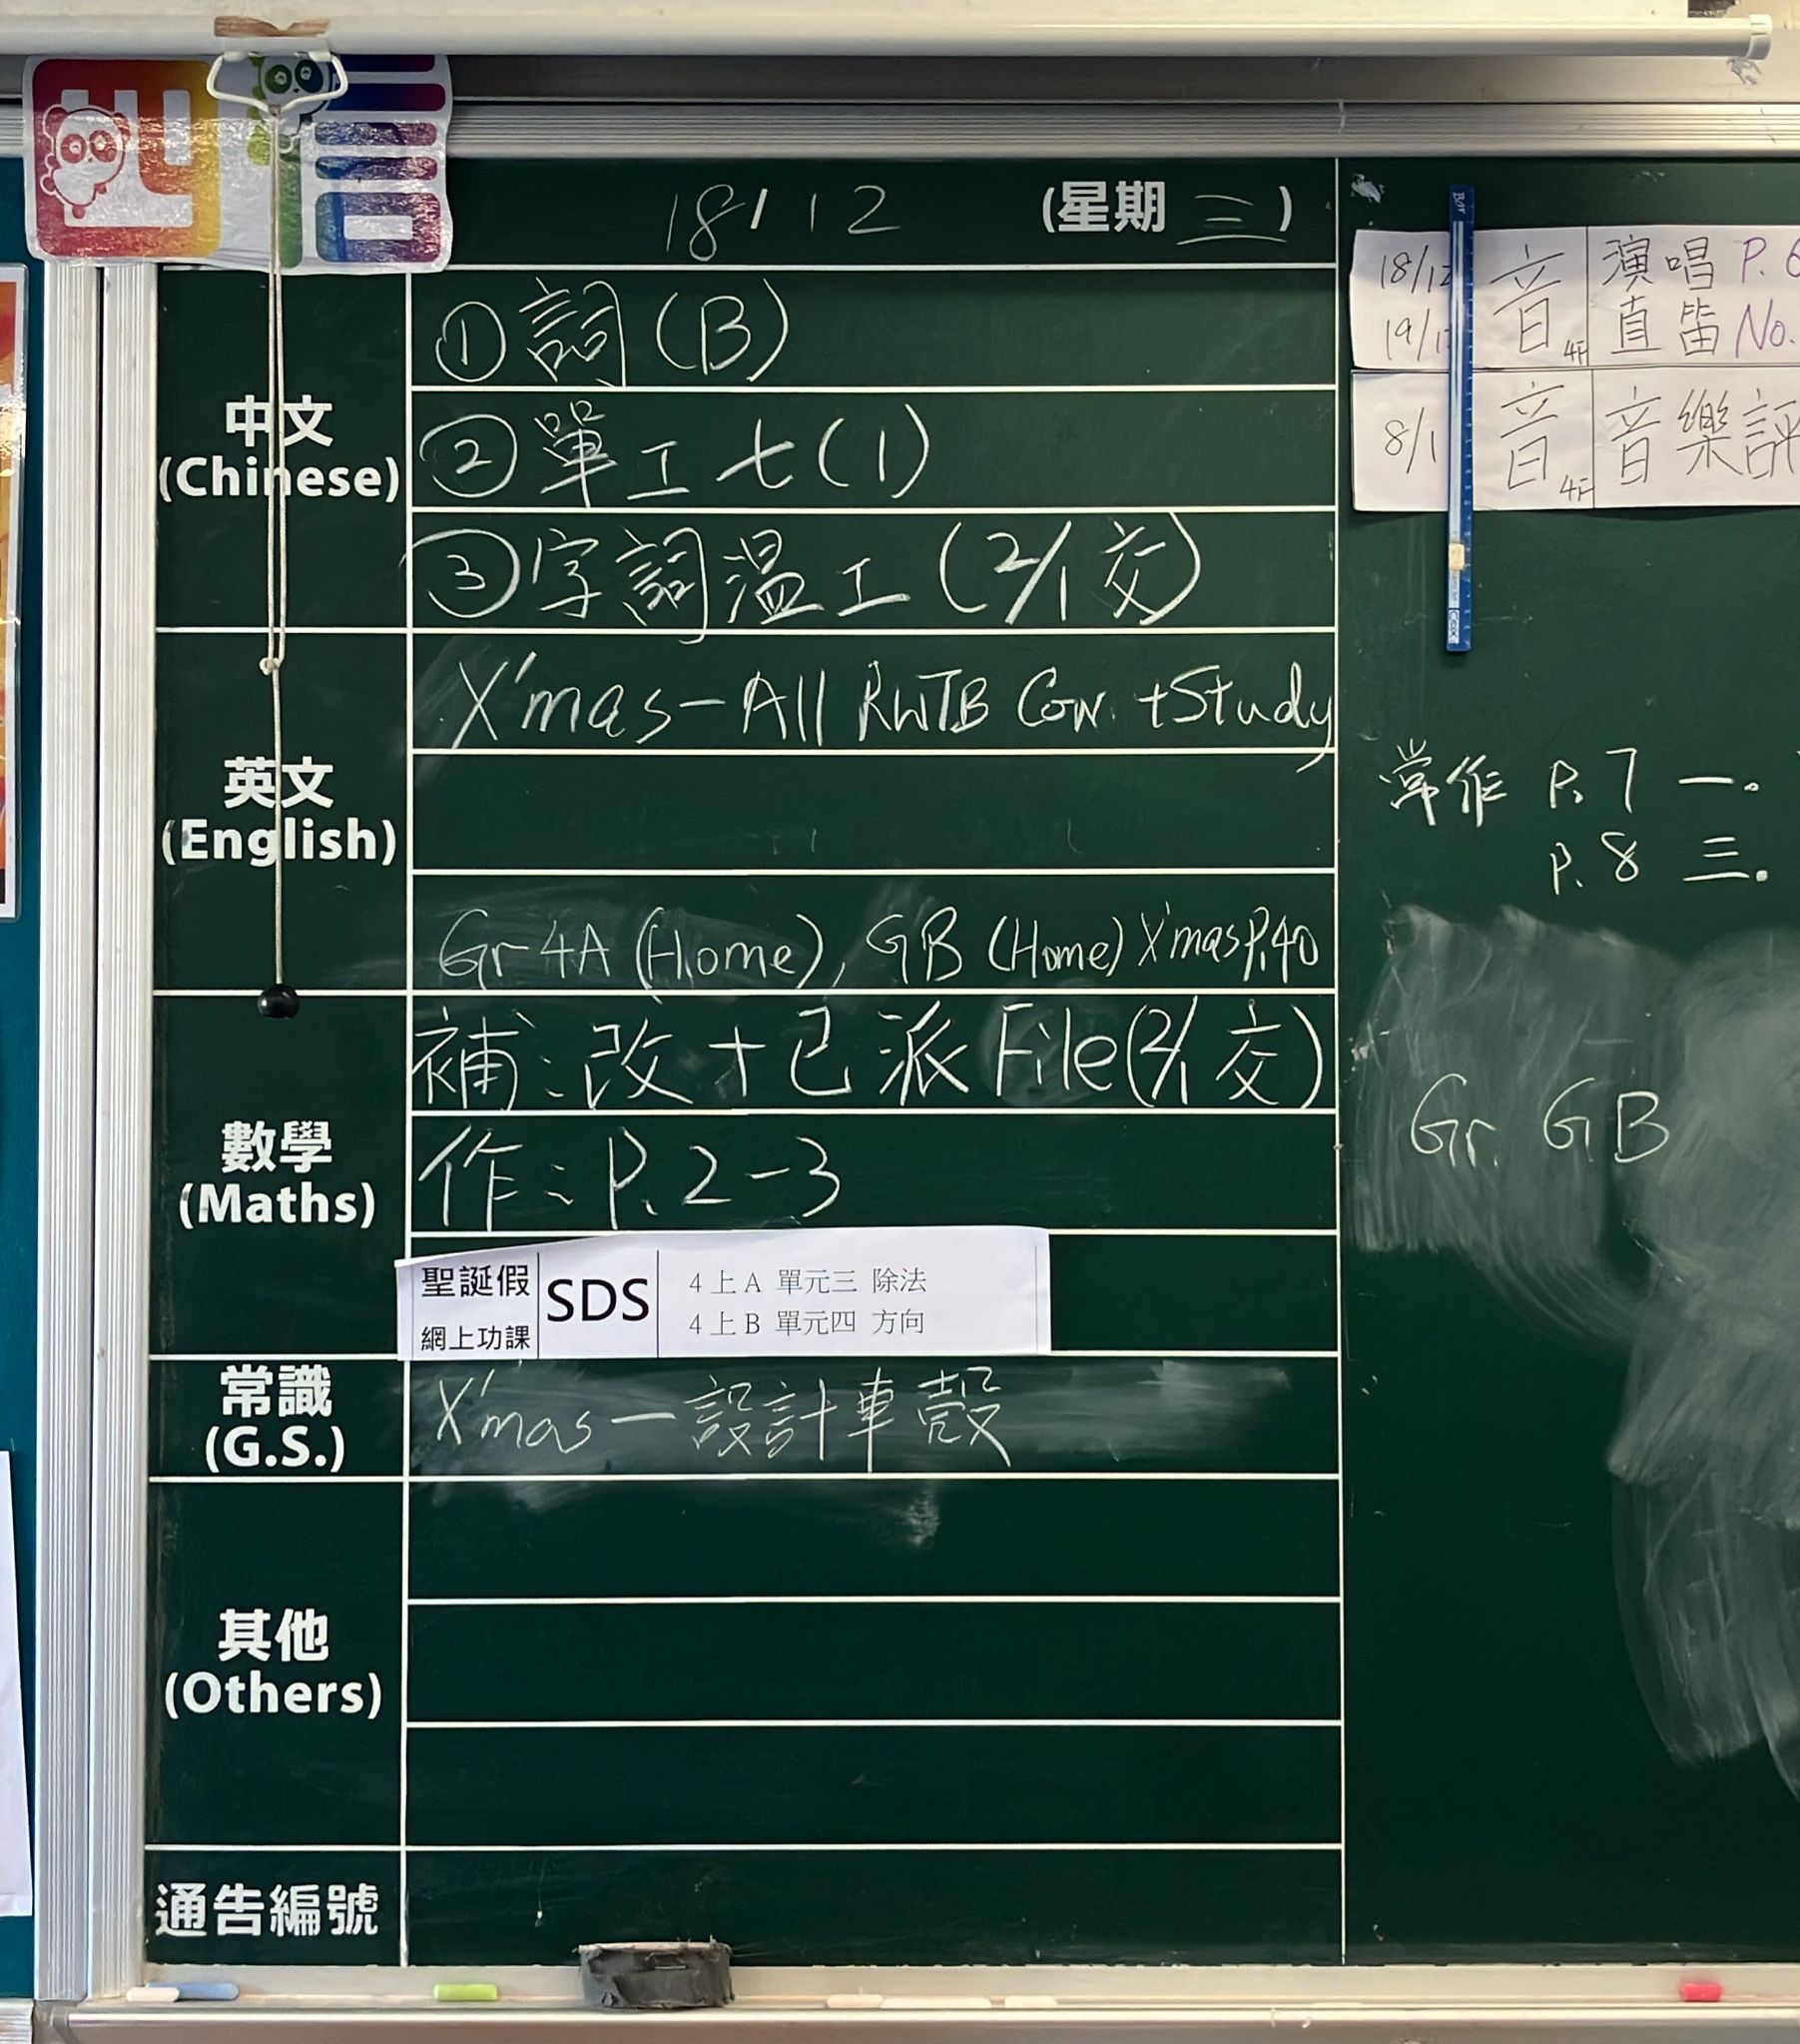 四信
18/12 (星期三)
中文
(Chinese)
①詞(B)
②單工七(1)
③字詞溫工(2/1交)
英文
(English)
X'mas-All RWTB Cor. +Study
Gr 4A (Home), GB (Home) X'mas P.40
數學
(Maths)
補:改+已派File(2/1交)
作:P.2-3
聖誕假
網上功課
SDS
4上A 單元三 除法
4上B 單元四 方向
常識
(G.S.)
X'mas—設計車殼
其他
(Others)
通告編號
18/12
19/1
音 4F
演唱 P.6
直笛 No.
8/1 音 4F 音樂評
常作 P.7 一.
P.8 三.
Gr. GB